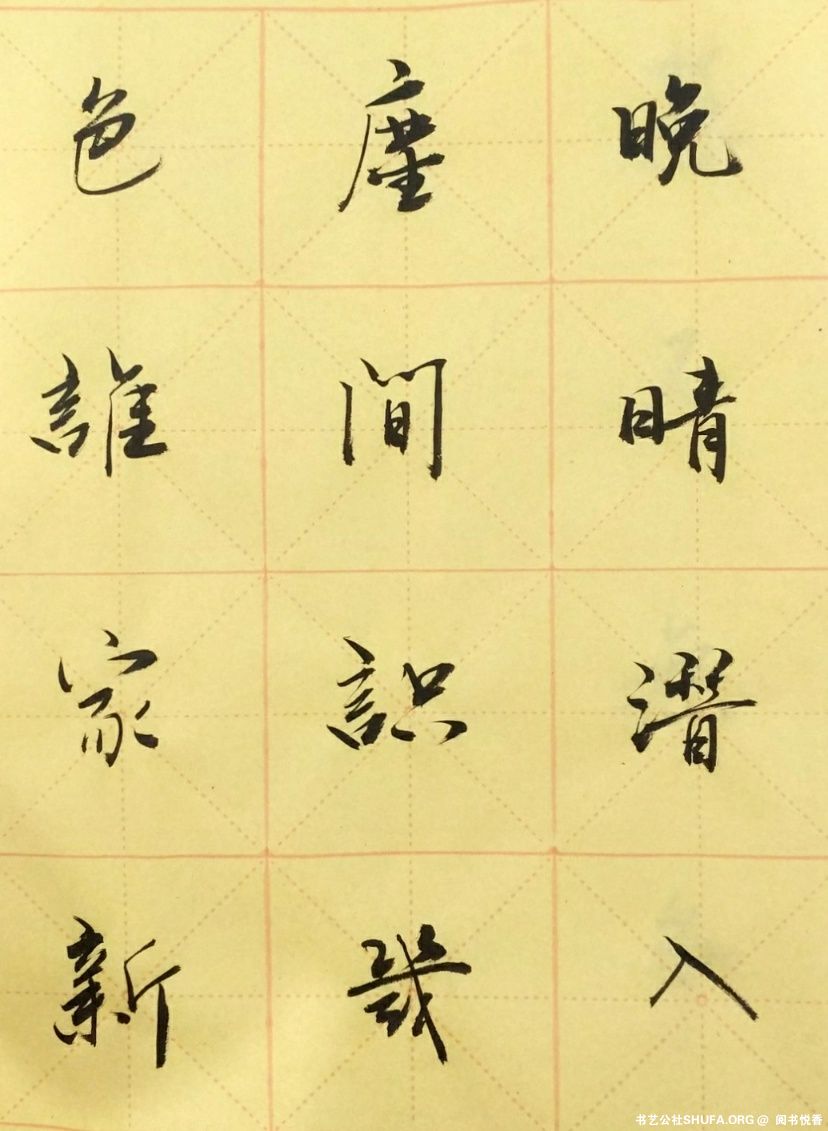 晚晴潛入
塵間識幾
色誰家新
书艺公社SHUFA.ORG @ 阅书悦香